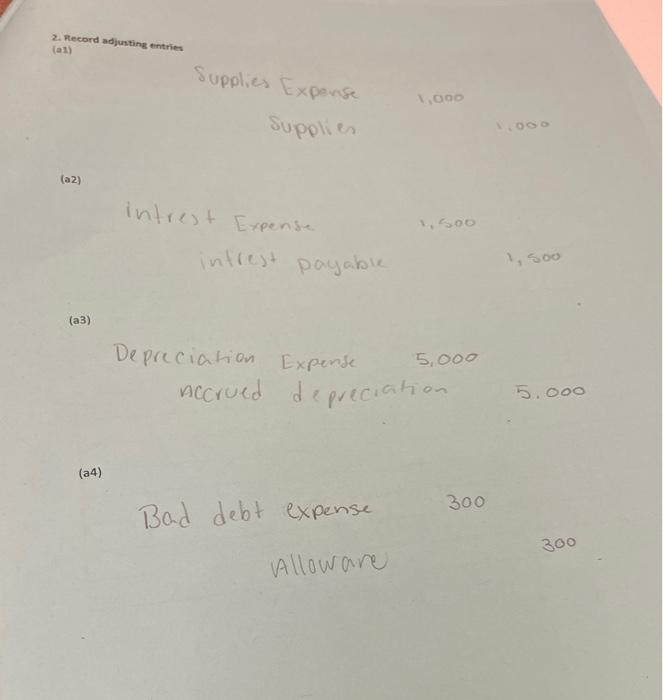 2. Record adjusting entries
(a1)
Supplies Expense 1,000
Supplies 1.000
(a2)
intrest Expense 1,500
intrest payable 1,500
(a3)
Depreciation Expense 5,000
Accrued depreciation 5.000
(a4)
Bad debt expense 300
Alloware 300